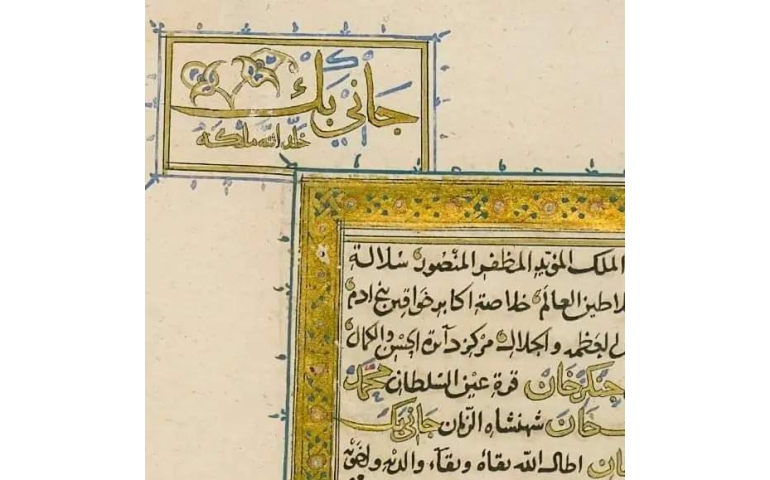 جاني بك
خلد الله ملكه
الملك المؤيد المظفر المنصور سلالة
لاطين العالم خلاصة اكابر خواقين بني ادم
العظمة والجلال مركز دآئرة الحسن والكمال
جنكزخان قرة عين السلطان محمد
خان شهنشاه الزمان جاني بك
ان اطال الله بقاه وبقاء والديه واخويه